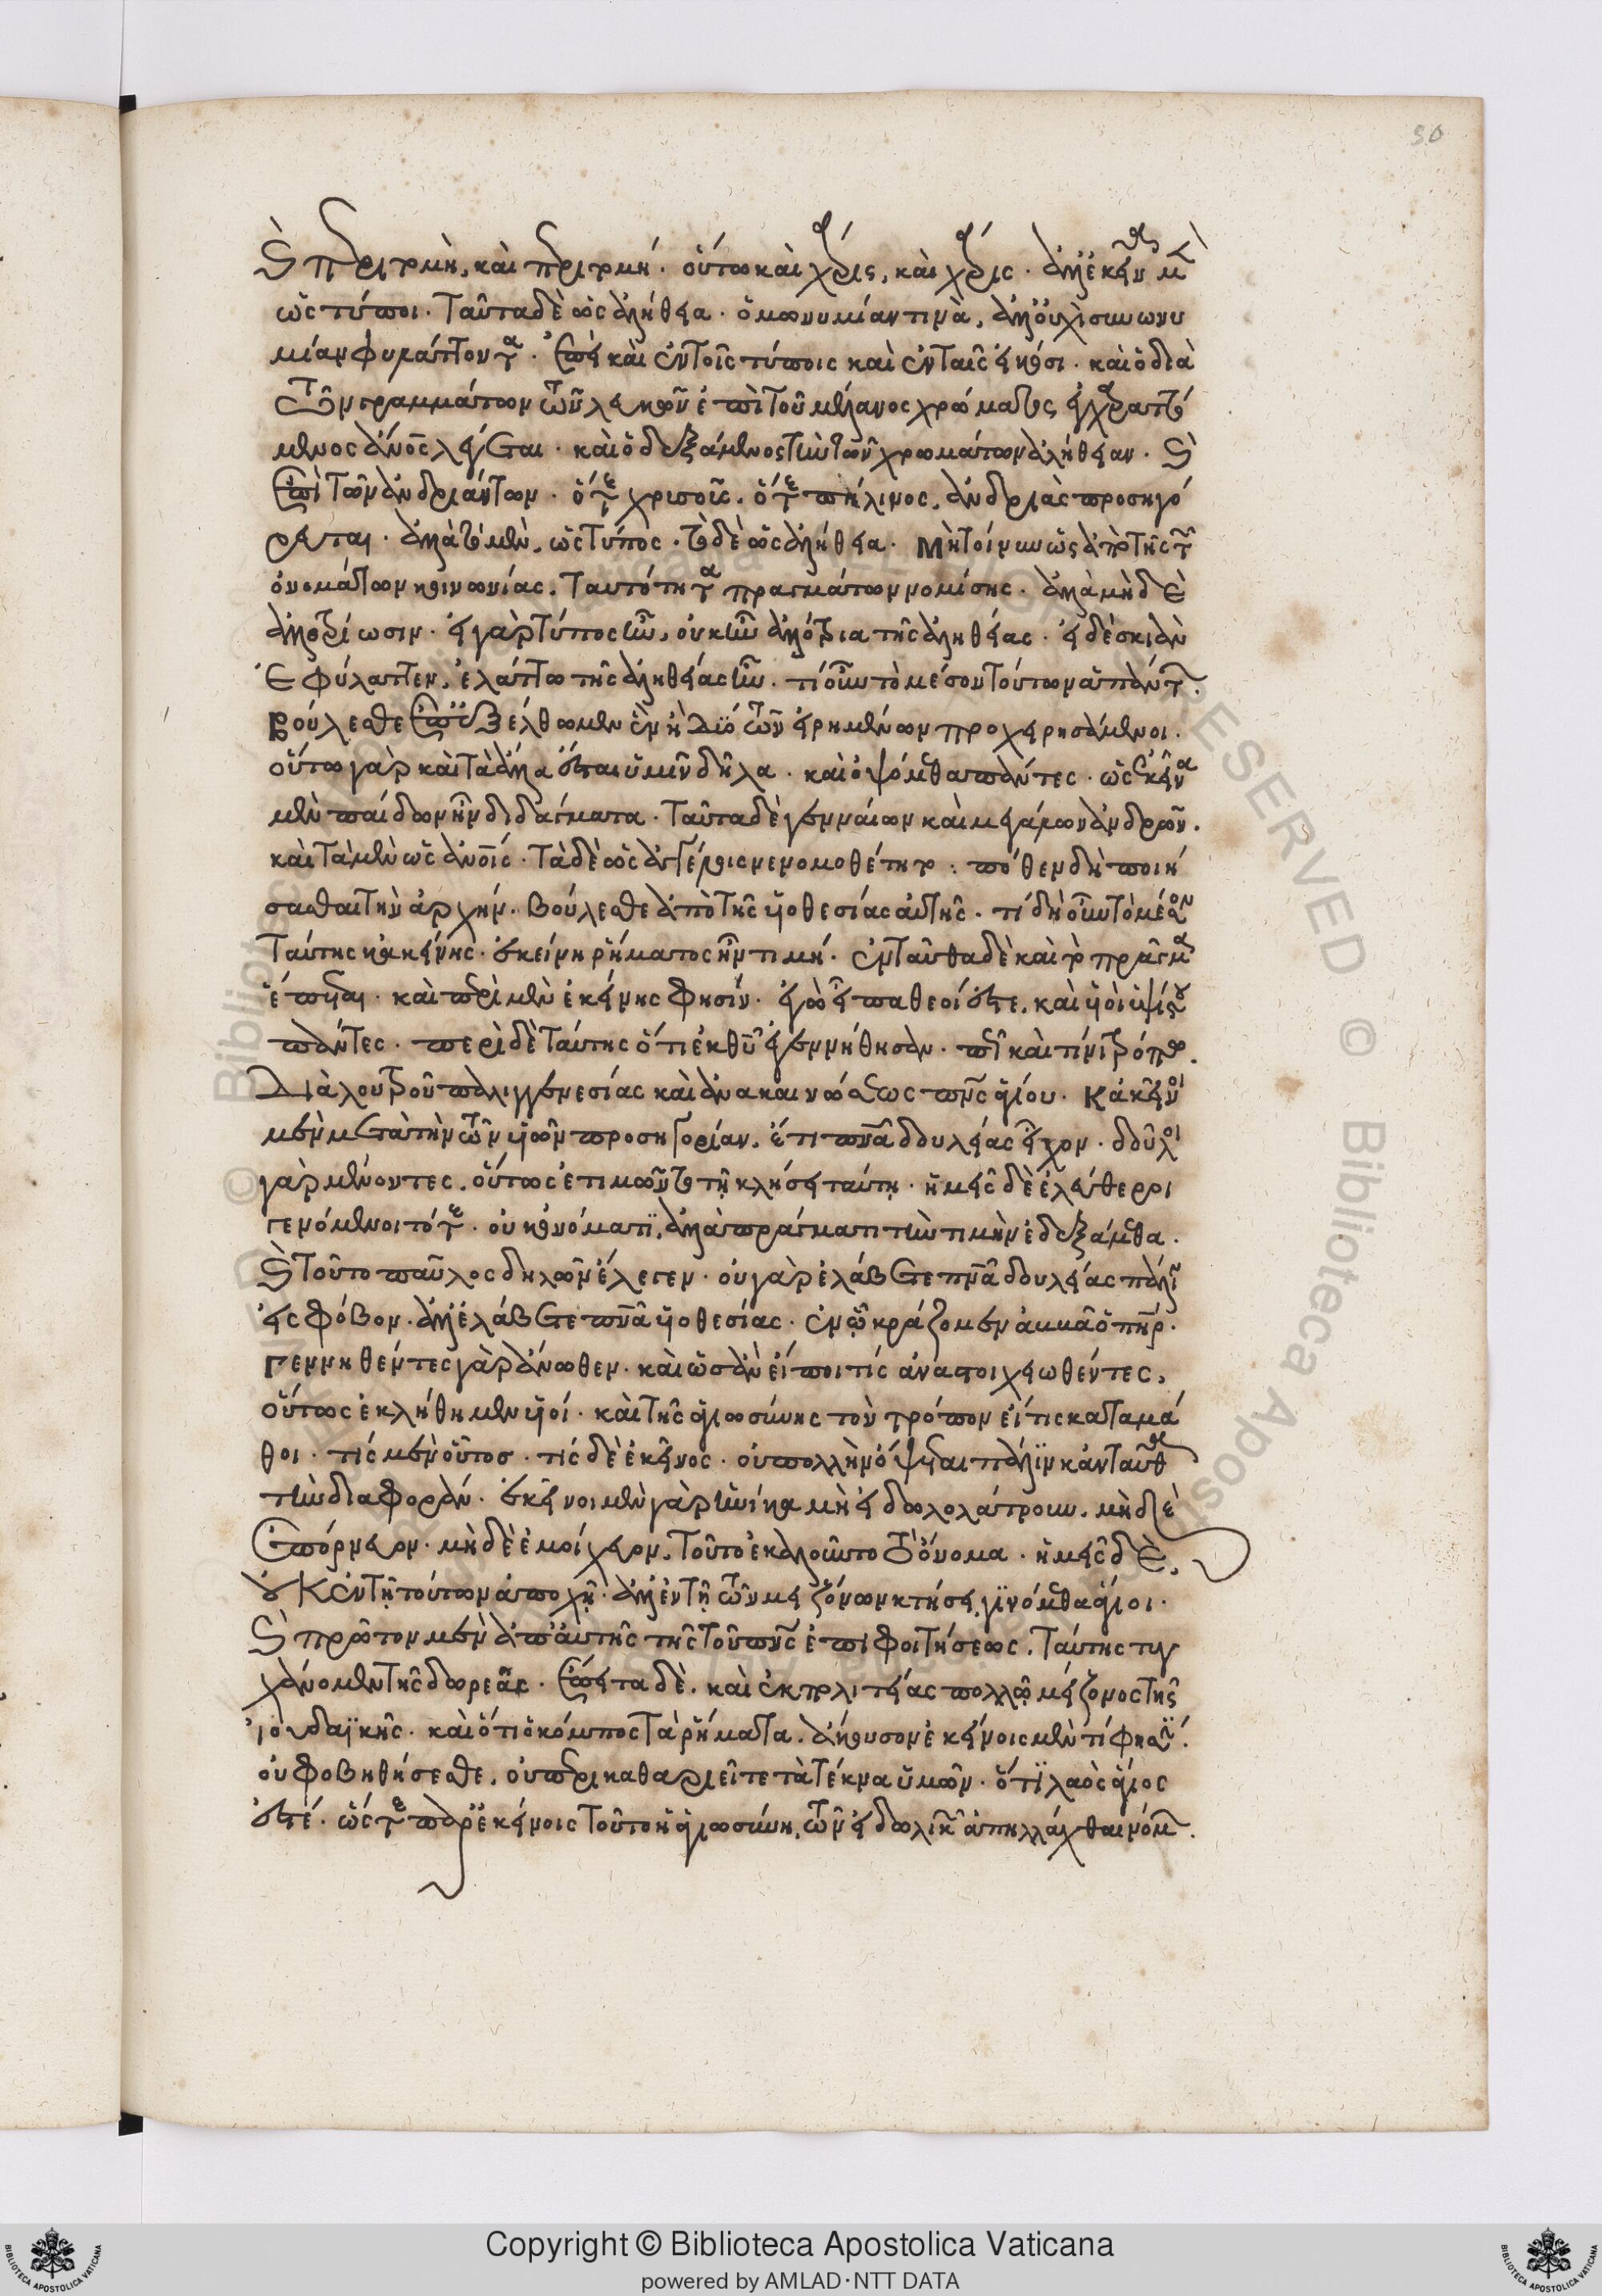 καὶ περιτομὴ, καὶ περιτομή· οὕτω καὶ χάρις, καὶ χάρις· ἀλλ' ἐκεῖνα μὲν
ὡς τύποι· ταῦτα δὲ ὡς ἀλήθεια· ὁμωνυμίαν τινὰ, ἀλλ' οὐχὶ συνωνυ
μίαν φυλάττοντα. ἐπεὶ καὶ ἐν τοῖς τύποις καὶ ἐν ταῖς εἰκόσι· καὶ ὁ διὰ
τῶν γραμμάτων τῶν λευκῶν ἐπὶ τοῦ μέλανος χρώματος ἐγχαραττό
μενος ἄνος λέγεται· καὶ ὁ δεξάμενος τὴν τῶν χρωμάτων ἀλήθειαν· καὶ
ἐπὶ τῶν ἀνδριάντων· ὅ τε χρυσοῦς, ὅ τε πήλινος, ἀνδριὰς προσηγό
ρευται· ἀλλὰ τὸ μὲν, ὡς τύπος· τὸ δὲ ὡς ἀλήθεια· Μὴ τοίνυν ὡς ἀπὸ τῆς τῶν
ὀνομάτων κοινωνίας, ταυτότητα πραγμάτων νομίσῃς· ἀλλὰ μὴ δὲ
ἀλλοτρίωσιν· εἰ γὰρ τύπος ἦν, οὐκ ἦν ἀλλότρια τῆς ἀληθείας· εἰ δὲ σκιὰν
ἐφύλαττεν, ἐλάττω τῆς ἀληθείας ἦν. τί οὖν τὸ μέσον τούτων ἁπάντων.
βούλεσθε ἐπεξέλθωμεν ἓν ἢ δύο τῶν εἰρημένων προχειρησάμενοι.
οὕτω γὰρ καὶ τὰ ἄλλα ἔσται ὑμῖν δῆλα· καὶ ὀψόμεθα πάντες· ὡς ἐκεῖνα
μὲν παίδων ἦν διδάγματα· ταῦτα δὲ γενναίων καὶ μεγάλων ἀνδρῶν.
καὶ τὰ μὲν ὡς ἀνοις· τὰ δὲ ὡς ἀγγέλοις νενομοθέτητο· πόθεν δὴ ποιή
σασθαι τὴν ἀρχήν. Βούλεσθε ἀπὸ τῆς υἱοθεσίας αὐτῆς· τί δὴ οὖν τὸ μέσον
ταύτης κἀκείνης· ἐκείνη ῥήματος ἦν τιμή. ἐνταῦθα δὲ καὶ τὸ πρᾶγμα
ἕπεται· καὶ περὶ μὲν ἐκείνης φησίν· ἐγὼ εἶπα θεοί ἐστε, καὶ υἱοὶ ὑψίστου
πάντες· περὶ δὲ ταύτης ὅτι ἐκ θυ ἐγεννήθησαν· πῶς καὶ τίνι τρόπῳ.
Διὰ λουτροῦ παλιγγενεσίας καὶ ἀνακαινώσεως πνς ἁγίου. Κἀκεῖνοι
μὲν μετὰ τὴν τῶν υἱῶν προσηγορίαν, ἔτι πνα δουλείας εἶχον· δοῦλοι
γὰρ μένοντες, οὕτως ἐτιμῶντο τῇ κλήσει ταύτῃ· ἡμεῖς δὲ ἐλεύθεροι
γενόμενοι τότε, οὐκ ὀνόματι, ἀλλὰ πράγματι τὴν τιμὴν ἐδεξάμεθα.
καὶ τοῦτο παῦλος δηλῶν ἔλεγεν· οὐ γὰρ ἐλάβετε πνα δουλείας πάλιν
εἰς φόβον· ἀλλ' ἐλάβετε πνα υἱοθεσίας· ἐν ᾧ κράζομεν ἀββᾶ ὁ πηρ.
Γεννηθέντες γὰρ ἄνωθεν· καὶ ὡς ἂν εἴποι τίς ἀναστοιχειωθέντες,
οὕτως ἐκλήθημεν υἱοί· καὶ τῆς ἁγιωσύνης τὸν τρόπον εἴ τις καταμά
θοι· τίς μὲν οὗτος· τίς δὲ ἐκεῖνος· οὐ πολλὴν ὄψεται πάλιν κἀνταῦθα
τὴν διαφοράν. ἐκεῖνοι μὲν γὰρ ἡνίκα μὴ εἰδωλολάτρουν, μὴ δὲ
ἐπόρνευον· μὴ δὲ ἐμοίχευον, τοῦτο ἐκαλοῦντο τὸ ὄνομα· ἡμεῖς δὲ,
οὐκ ἐν τῇ τούτων ἀποχῇ· ἀλλ' ἐν τῇ τῶν μειζόνων κτήσει, γινόμεθα ἅγιοι.
καὶ πρῶτον μὲν ἀπ' αὐτῆς τῆς τοῦ πνς ἐπιφοιτήσεως, ταύτης τυγ
χάνομεν τῆς δωρεᾶς· ἔπειτα δὲ, καὶ ἐκ πολιτείας πολλῷ μείζονος τῆς
ἰουδαϊκῆς· καὶ ὅτι οὐ κόμπος τὰ ῥήματα, ἄκουσον ἐκείνοις μὲν τί φησίν.
οὐ φοβηθήσεσθε, οὐ περικαθαριεῖτε τὰ τέκνα ὑμῶν· ὅτι λαὸς ἅγιος
ἐστέ· ὥστε παρ' ἐκείνοις τοῦτο ἡ ἁγιωσύνη, τῶν εἰδωλικῶν ἀπηλλάχθαι νόμων.